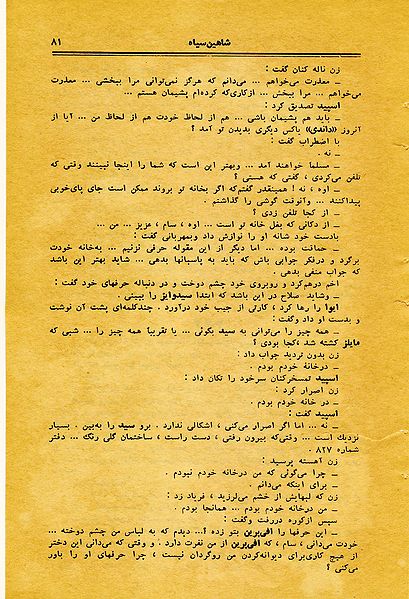 شاهین‌سیاه ۸۱
زن ناله کنان گفت :
ـ معذرت میخواهم ... میدانم که هرگز نمی‌توانی مرا ببخشی ... معذرت
می‌خواهم ... مرا ببخش ... ازکاری‌که کرده‌ام پشیمان هستم ...
اسپید تصدیق کرد :
ـ باید هم پشیمان باشی ... هم از لحاظ خودت هم از لحاظ من ... آیا از
آنروز «داندی» یاکس دیگری بدیدن تو آمد ؟
با اضطراب گفت :
ـ نه .
ـ مسلما خواهند آمد ... وبهتر این است که شما را اینجا نبینند وقتی که
تلفن می‌کردی ، گفتی که هستی ؟
ـ اوه ، نه ! همینقدر گفتم‌که اگر بخانه تو بروند ممکن است جای پای‌خوبی
پیداکنند ... وآنوقت گوشی را گذاشتم .
ـ از کجا تلفن زدی ؟
ـ از دکانی که بغل خانه تو است ... اوه ، سام ، عزیز ... من ...
بادست خود شانه او را نوازش داد وبمهربانی گفت :
ـ حماقت بوده ... اما دیگر از این مقوله حرفی نزنیم ... به‌خانه خودت
برگرد و درفکر جوابی باش که باید به پاسبانها بدهی ... شاید بهتر این باشد
که جواب منفی بدهی .
اخم درهم‌کرد و روبروی خود چشم دوخت و در دنباله حرفهای خود گفت :
ـ وشاید صلاح در این باشد که ابتدا سیدوایز را ببینی .
ایوا را رها کرد ، کارتی از جیب خود درآورد . چندکلمه‌ای پشت آن نوشت
و بدست او داد وگفت :
ـ همه چیز را می‌توانی به سید بگوئی ... یا تقریبا همه چیز را ... شبی که
مایلز کشته شد ،کجا بودی ؟
زن بدون تردید جواب داد :
ـ درخانهٔ خودم بودم .
اسپید تمسخرکنان سرخود را تکان داد :
زن اصرار کرد :
ـ در خانه خودم بودم .
اسپید گفت :
ـ نه ... اما اگر اصرار می‌کنی ، اشکالی ندارد . برو سید را به‌بین . بسیار
نزدیك است ... وقتی‌که بیرون رفتی ، دست راست ، ساختمان گلی رنگ ... دفتر
شماره ۸۲۷ .
زن آهسته پرسید :
ـ چرا می‌گوئی که من درخانه خودم نبودم .
ـ برای اینکه میدانم .
زن که لبهایش از خشم می‌لرزید ، فریاد زد :
ـ من درخانه خودم بودم ... همانجا بودم .
سپس ازکوره دررفت وگفت :
ـ این حرفها را افی‌برین بتو زده ؟... دیدم که به لباس من چشم دوخته ...
خودت می‌دانی ، سام ، که افی‌برین از من نفرت دارد . و وقتی که می‌دانی این دختر
از هیچ کاری‌برای دیوانه‌کردن من روگردان نیست ، چرا حرفهای او را باور
می‌کنی ؟